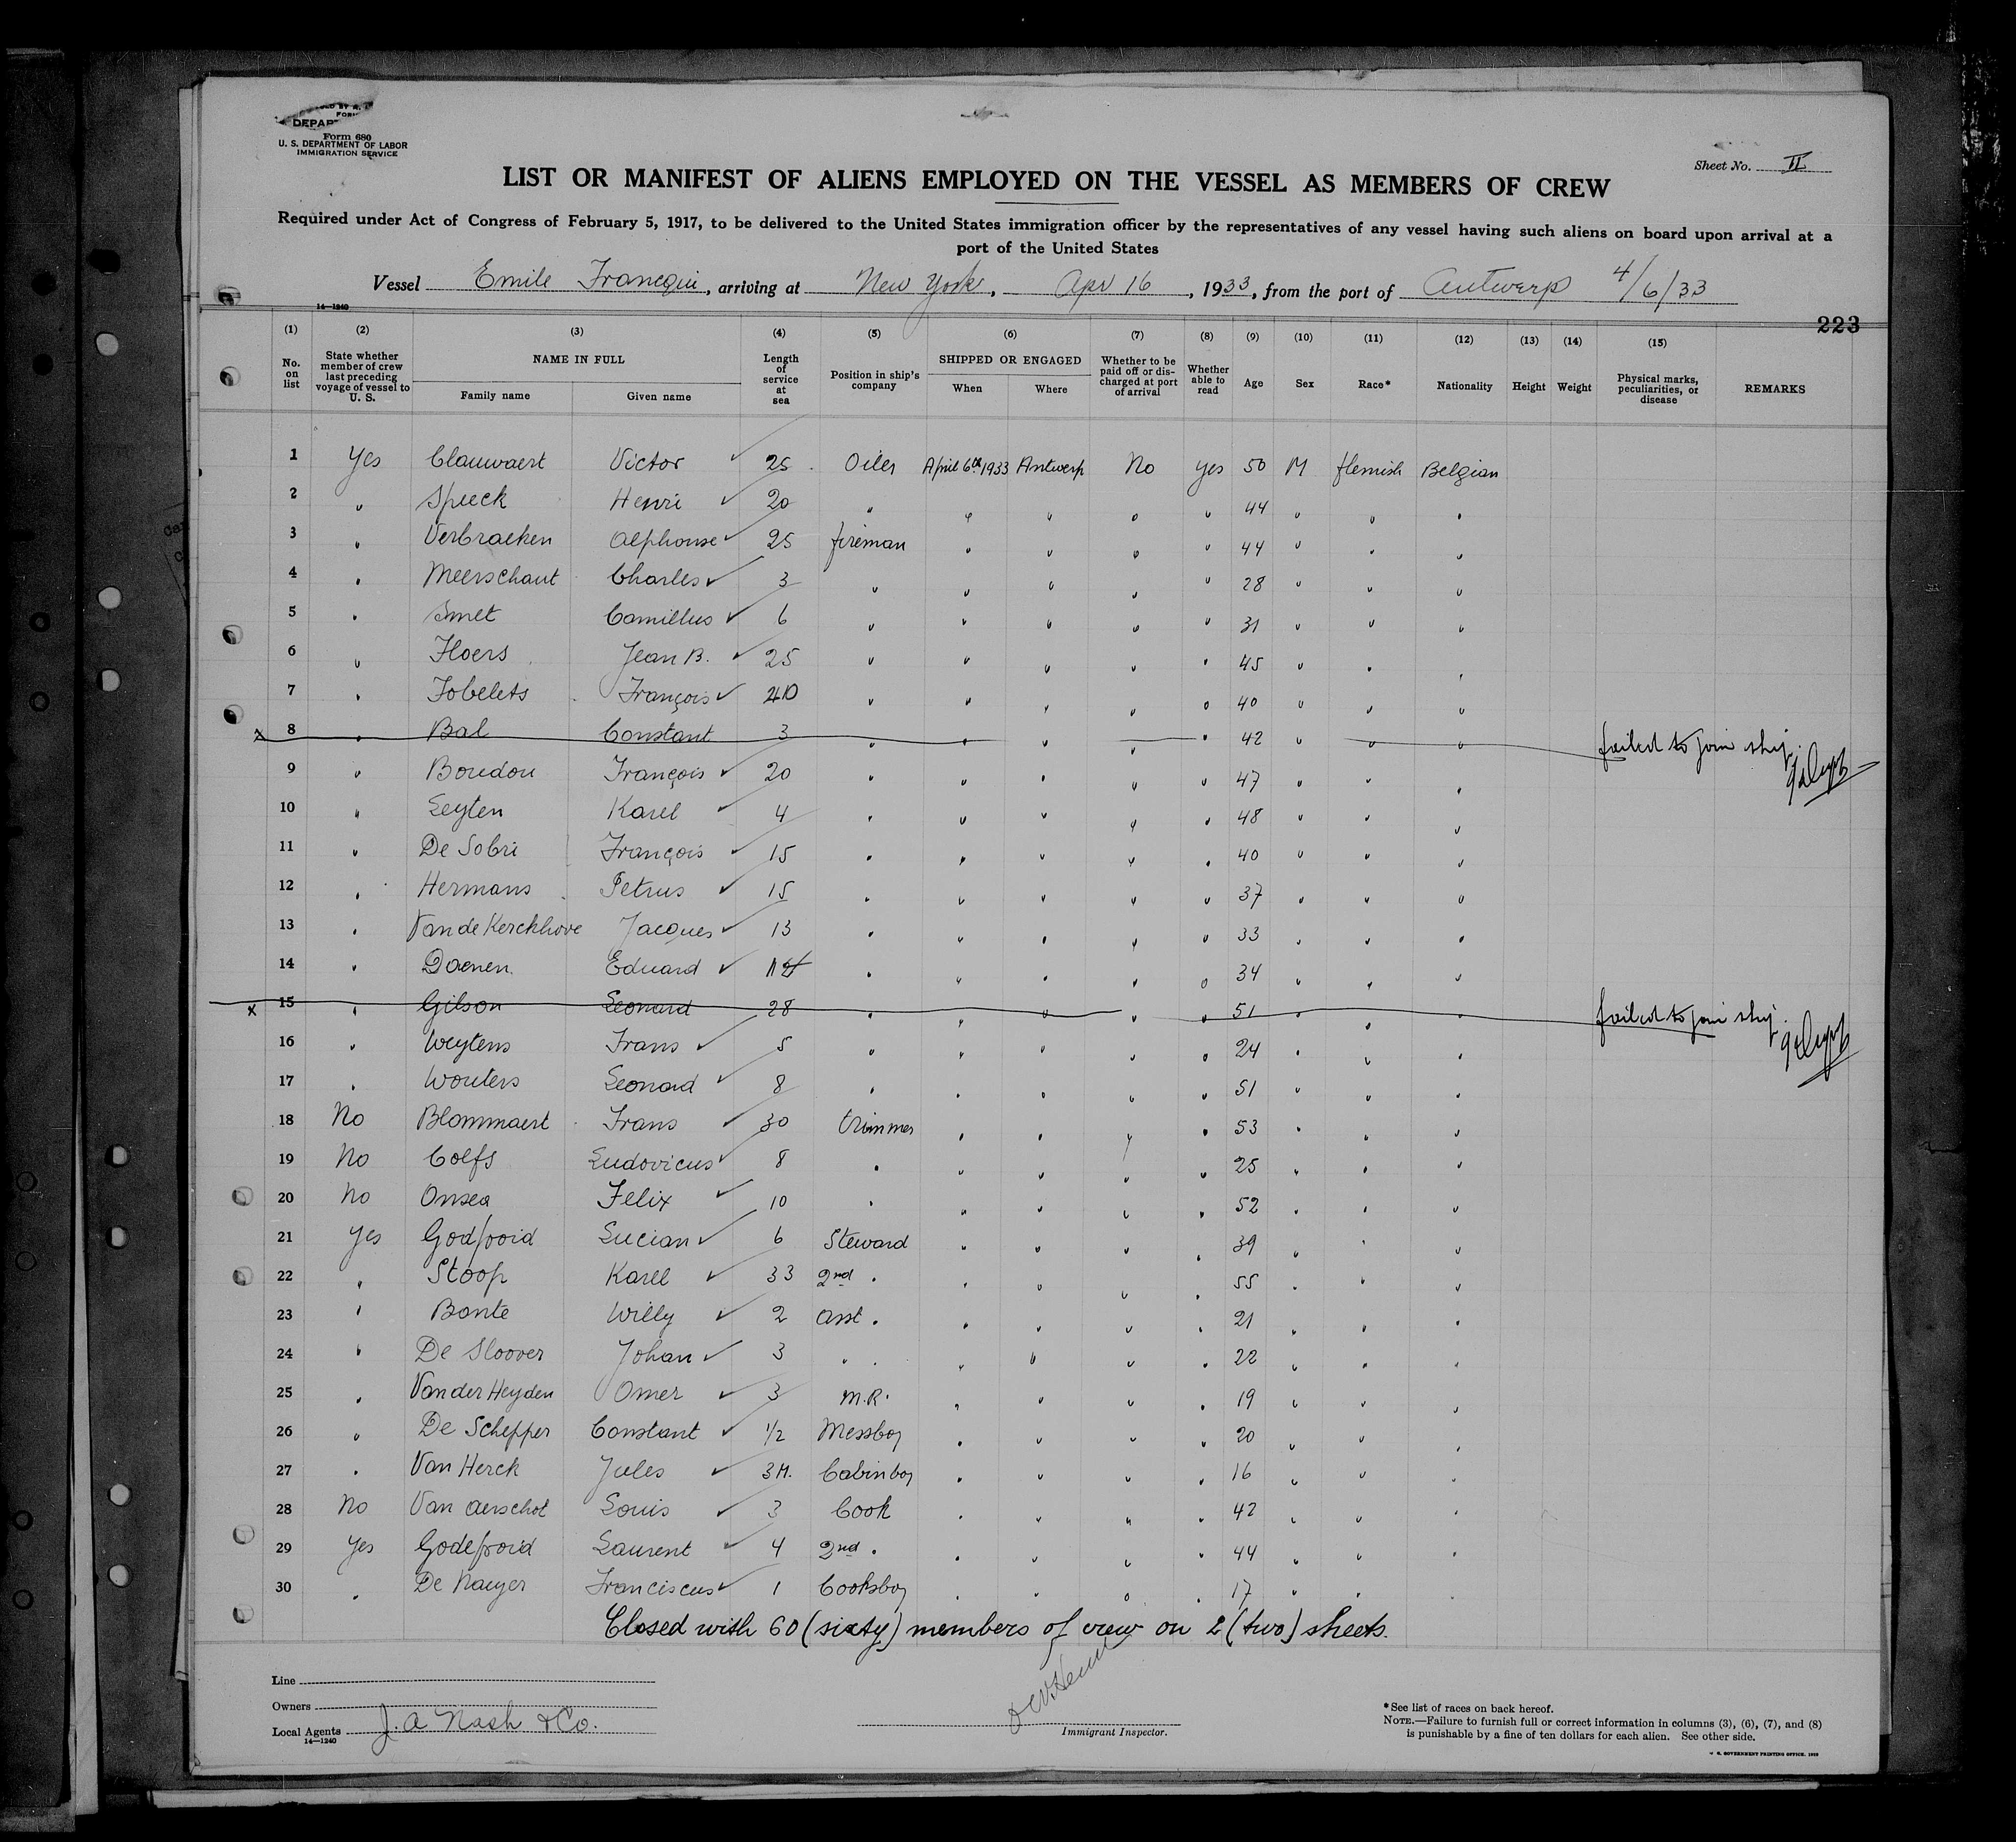 DEPAR
Form 680
U. S. DEPARTMENT OF LABOR
IMMIGRATION SERVICE
Sheet No. II
LIST OR MANIFEST OF ALIENS EMPLOYED ON THE VESSEL AS MEMBERS OF CREW
Required under Act of Congress of February 5, 1917, to be delivered to the United States immigration officer by the representatives of any vessel having such aliens on board upon arrival at a
port of the United States
Vessel Emile Francqui, arriving at New York, Apr 16, 1933, from the port of Antwerp 4/6/33
14—1240
223
(1) (2) (3) (4) (5) (6) (7) (8) (9) (10) (11) (12) (13) (14) (15)
No. on list State whether member of crew last preceding voyage of vessel to U. S. NAME IN FULL Family name Given name Length of service at sea Position in ship's company SHIPPED OR ENGAGED When Where Whether to be paid off or discharged at port of arrival Whether able to read Age Sex Race* Nationality Height Weight Physical marks, peculiarities, or disease REMARKS
1 Yes Clauwaert Victor ✓ 25 Oiler April 6th 1933 Antwerp No yes 50 M flemish Belgian
2 " Speeck Henri ✓ 20 " " " " " 44 " " "
3 " Verbraeken Alphonse ✓ 25 fireman " " " " 44 " " "
4 " Meerschaut Charles ✓ 3 " " " " " 28 " " "
5 " Smet Camillus ✓ 6 " " " " " 31 " " "
6 " Floers Jean B. ✓ 25 " " " " " 45 " " "
7 " Fobelets François ✓ " " " " " 40 " " "
x 8 " Bal Constant 3 " " " " " 42 " " " failed to join ship.
9 " Boudou François ✓ 20 " " " " " 47 " " "
10 " Leyten Karel ✓ 4 " " " " " 48 " " "
11 " De Sobri François ✓ 15 " " " " " 40 " " "
12 " Hermans Petrus ✓ 15 " " " " " 37 " " "
13 " Van de Kerckhove Jacques ✓ 13 " " " " " 33 " " "
14 " Daenen Eduard ✓ " " " " " 34 " " "
x 15 " Gilson Leonard 28 " " " " " 51 " " " failed to join ship.
16 " Weytens Frans ✓ 5 " " " " " 24 " " "
17 " Wouters Leonard ✓ 8 " " " " " 51 " " "
18 No Blommaert Frans ✓ 30 trimmer " " " " 53 " " "
19 No Colfs Ludovicus ✓ 8 " " " " " 25 " " "
20 No Onsea Felix ✓ 10 " " " " " 52 " " "
21 Yes Godfroid Lucian ✓ 6 Steward " " " " 39 " " "
22 " Stoop Karel ✓ 33 2nd " " " " " 55 " " "
23 " Bonte Willy ✓ 2 Asst " " " " " 21 " " "
24 " De Sloover Johan ✓ 3 " " " " " " 22 " " "
25 " Van der Heyden Omer ✓ 3 M.R. " " " " 19 " " "
26 " De Schepper Constant ✓ 1/2 Messboy " " " " 20 " " "
27 " Van Herck Jules ✓ 3 M. Cabinboy " " " " 16 " " "
28 No Van Aerschot Louis ✓ 3 Cook " " " " 42 " " "
29 Yes Godefroid Laurent ✓ 4 2nd " " " " " 44 " " "
30 " De Naeyer Franciscus ✓ 1 Cooksboy " " " " 17 " " "
Closed with 60 (sixty) members of crew on 2 (two) sheets.
Line
Owners
Local Agents J. A Nash & Co.
14—1240
Immigrant Inspector.
*See list of races on back hereof.
NOTE.—Failure to furnish full or correct information in columns (3), (6), (7), and (8)
is punishable by a fine of ten dollars for each alien. See other side.
U. S. GOVERNMENT PRINTING OFFICE